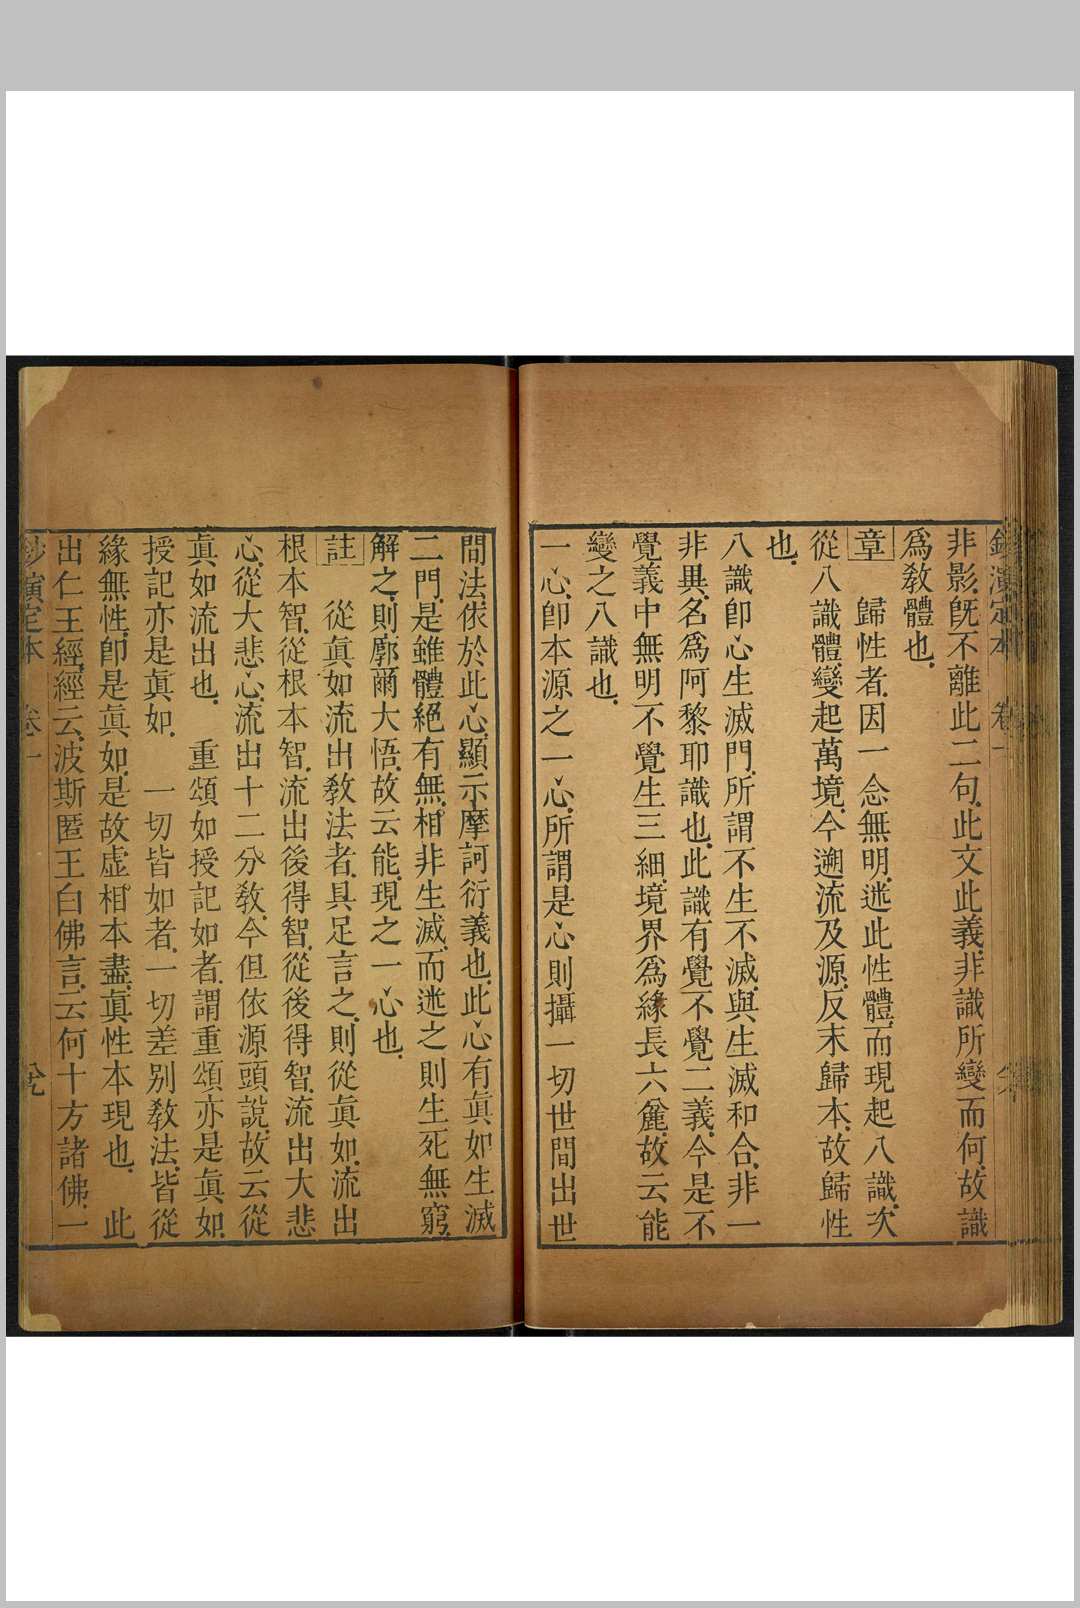 非影旣不離此二句此文此義非識所變而何故識
爲敎體也
章　歸性者因一念無明迷此性體而現起八識次
從八識體變起萬境今遡流及源反末歸本故歸性
也
八識卽心生滅門所謂不生不滅與生滅和合非一
非異名爲阿黎耶識也此識有覺不覺二義今是不
覺義中無明不覺生三細境界爲緣長六麁故云能
變之八識也
一心卽本源之一心所謂是心則攝一切世間出世
間法依於此心顯示摩訶衍義也此心有眞如生滅
二門是雖體絕有無相非生滅而迷之則生死無窮
解之則廓爾大悟故云能現之一心也
註　從眞如流出敎法者具足言之則從眞如流出
根本智從根本智流出後得智從後得智流出大悲
心從大悲心流出十二分敎今但依源頭說故云從
眞如流出也　重頌如授記如者謂重頌亦是眞如
授記亦是眞如　一切皆如者一切差别敎法皆從
緣無性卽是眞如是故虛相本盡眞性本現也　此
出仁王經經云波斯匿王白佛言云何十方諸佛一
鈔演定本　卷一